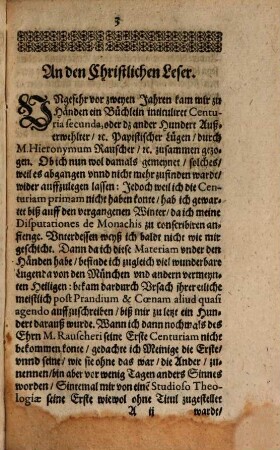 3
An den Christlichen Leser.
VNgefehr vor zweyen Jahren kam mir zu
Händen ein Büchlein intituliret Centu-
ria secunda, oder dz ander Hundert Auß-
erwehlter / ꝛc. Papistischer Lügen / durch
M. Hieronymum Rauscher / ꝛc. zusammen gezo-
gen. Ob ich nun wol damals gemeynet / solches /
weil es abgangen vnnd nicht mehr zufinden wardt /
wider aufzulegen lassen: Jedoch weil ich die Cen-
turiam primam nicht haben konte / hab ich gewar-
tet biß auff den vergangenen Winter / da ich meine
Disputationes de Monachis zu conscribiren an-
fienge. Vnterdessen weyß ich baldt nicht wie mir
geschicht. Dann da ich diese Materiam vnder den
Händen habe / befinde ich zugleich viel wunderbare
Lügend a von den München vnd andern vermeyn-
ten Heiligen: bekam dardurch Vrsach jhrer etliche
meistlich post Prandium & Cœnam aliud quasi
agendo auffzuschreiben / biß mir zu letzt ein Hun-
dert darauß wurde. Wann ich dann nochmals des
Ehrn M. Rauscheri seine Erste Centuriam nicht
bekommen konte / gedachte ich Meinige die Erste /
vnnd seine / wie sie ohne das war / die Ander / zu-
nennen / bin aber vor wenig Tagen anders Sinnes
worden / Sintemal mir von einē Studioso Theo-
logiæ seine Erste wiewol ohne Titul zugestellet
A ij
wardt /